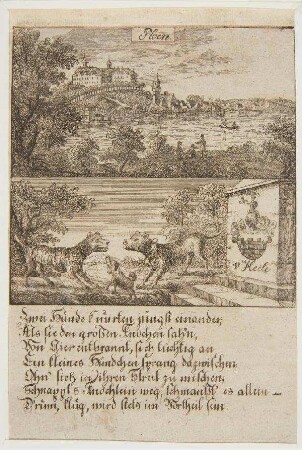 Ploen
v Hecle
Zwei Hunde knurten jüngst einander,
Als sie den großen Knochen sah'n,
Von Gier entbrannt, sich hitzig an
Ein kleines Hündchen sprang dazwischn
Ohn' sich in ihren Streit zu mischen,
Schnapt's Knöchlein weg, schmaußt es allein —
Drum, klug, wird stets im Vortheil sein